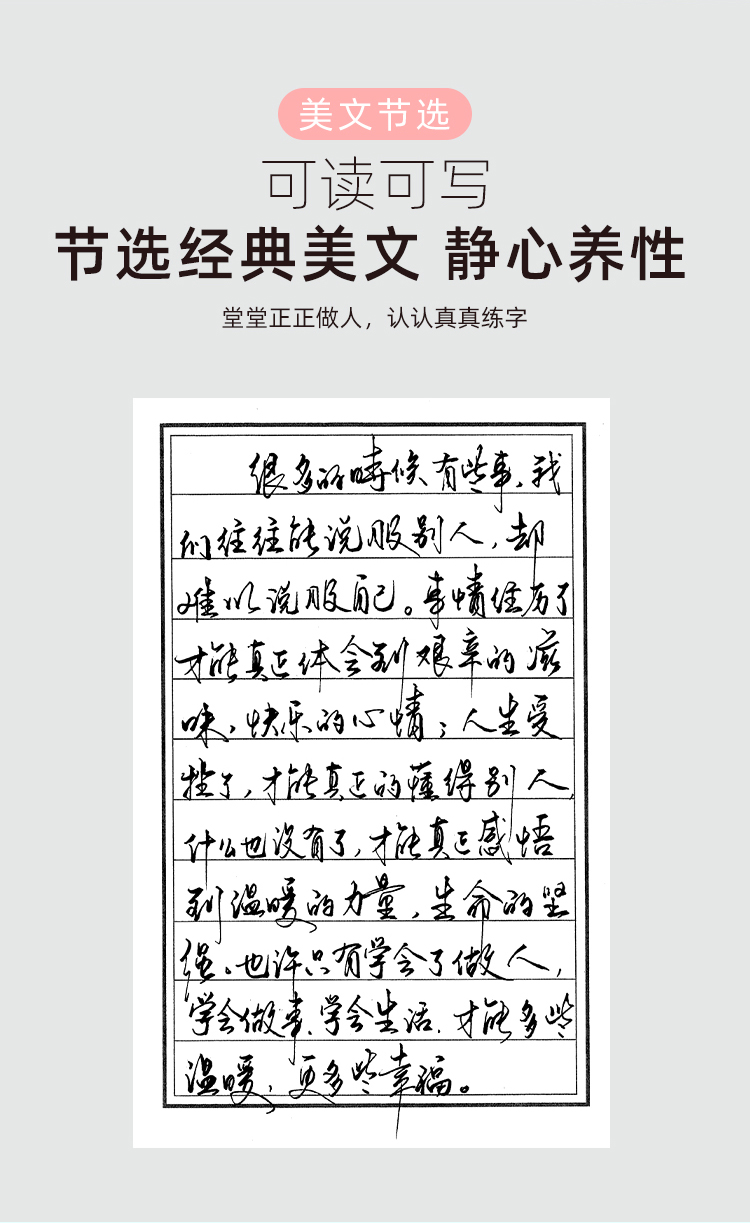 美文节选
可读可写
节选经典美文 静心养性
堂堂正正做人，认认真真练字
很多的時候，有些事，我
们往往能说服别人，却
难以说服自己。事情经历了
才能真正体会到艰辛的滋
味，快乐的心情；人生受
挫了，才能真正的懂得别人，
什么也没有了，才能真正感悟
到温暖的力量，生命的坚
强。也许只有学会了做人，
学会做事、学会生活，才能多些
温暖，更多些幸福。